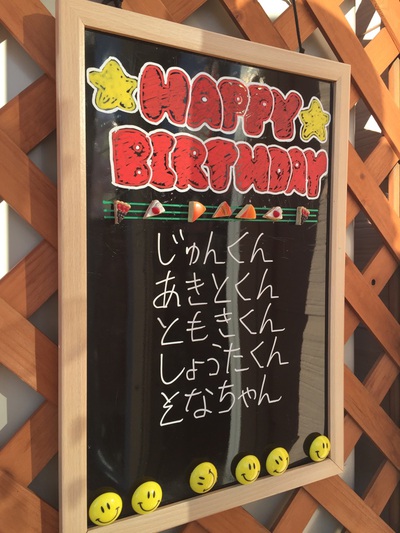 HAPPY
BIRTHDAY
じゅんくん
あきとくん
ともきくん
しょうたくん
そなちゃん